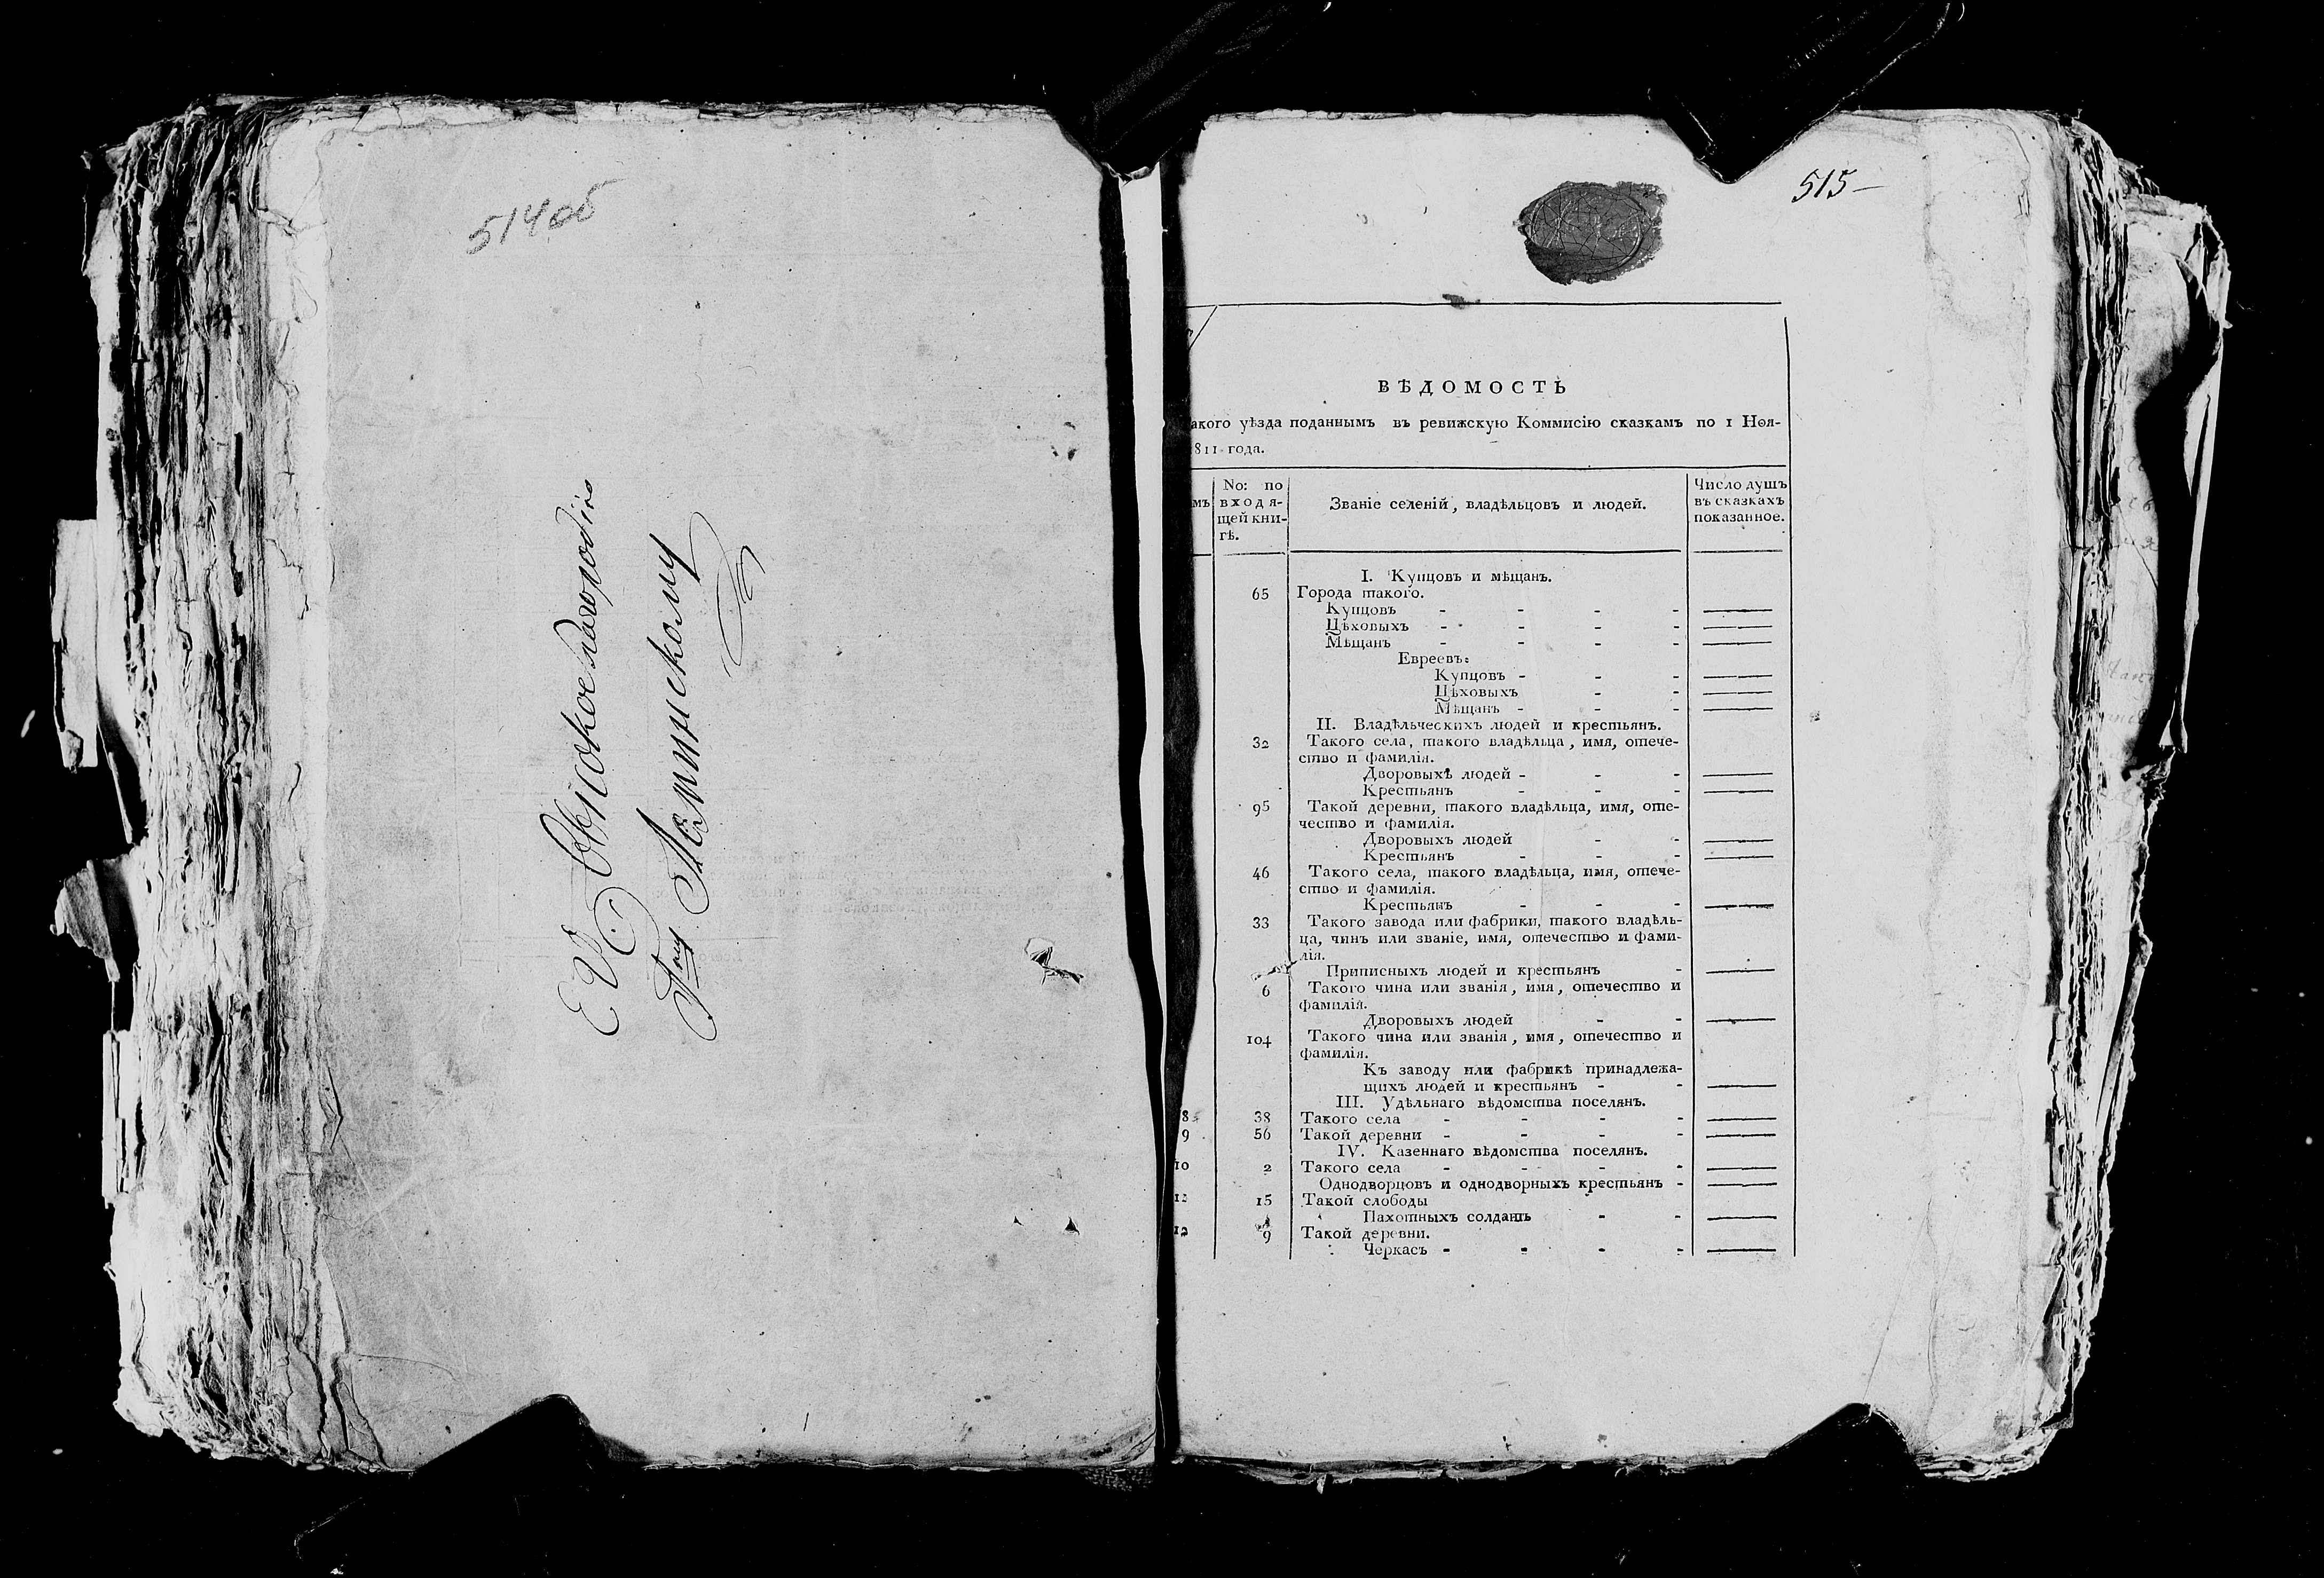 514об
Е. В. Высокоблагородiю
Гну Лотинскому
515
ВѢДОМОСТЬ
акого уѣзда поданнымъ въ ревижскую Коммисiю сказкамъ по 1 Ноя-
811 года.
мъ
No: по
входя-
щей кни-
гѣ.
Званiе селенiй, владѣльцовъ и людей.
Число душъ
въ сказкахъ
показанное.
I. Купцовъ и мѣщанъ.
65 Города такого.
Купцовъ - - - -
Цѣховыхъ - - - -
Мѣщанъ - - - -
Евреевъ:
Купцовъ - - -
Цѣховыхъ - -
Мѣщанъ - - -
II. Владѣльческихъ людей и крестьянъ.
32 Такого села, такого владѣльца, имя, отече-
ство и фамилiя.
Дворовыхъ людей - - -
Крестьянъ - - -
95 Такой деревни, такого владѣльца, имя, оте-
чество и фамилiя.
Дворовыхъ людей - -
Крестьянъ - - -
46 Такого села, такого владѣльца, имя, отече-
ство и фамилiя.
Крестьянъ - - -
33 Такого завода или фабрики, такого владѣль-
ца, чинъ или званiе, имя, отечество и фами-
лiя.
Приписныхъ людей и крестьянъ -
6 Такого чина или званiя, имя, отечество и
фамилiя.
Дворовыхъ людей - -
104 Такого чина или званiя, имя, отечество и
фамилiя.
Къ заводу или фабрикѣ принадлежа-
щихъ людей и крестьянъ - -
III. Удѣльнаго вѣдомства поселянъ.
8 38 Такого села - - - -
9 56 Такой деревни - - - -
IV. Казеннаго вѣдомства поселянъ.
10 2 Такого села - - - -
Однодворцовъ и однодворныхъ крестьянъ -
15 Такой слободы
Пахотныхъ солдатъ - -
12 9 Такой деревни.
Черкасъ - - - -